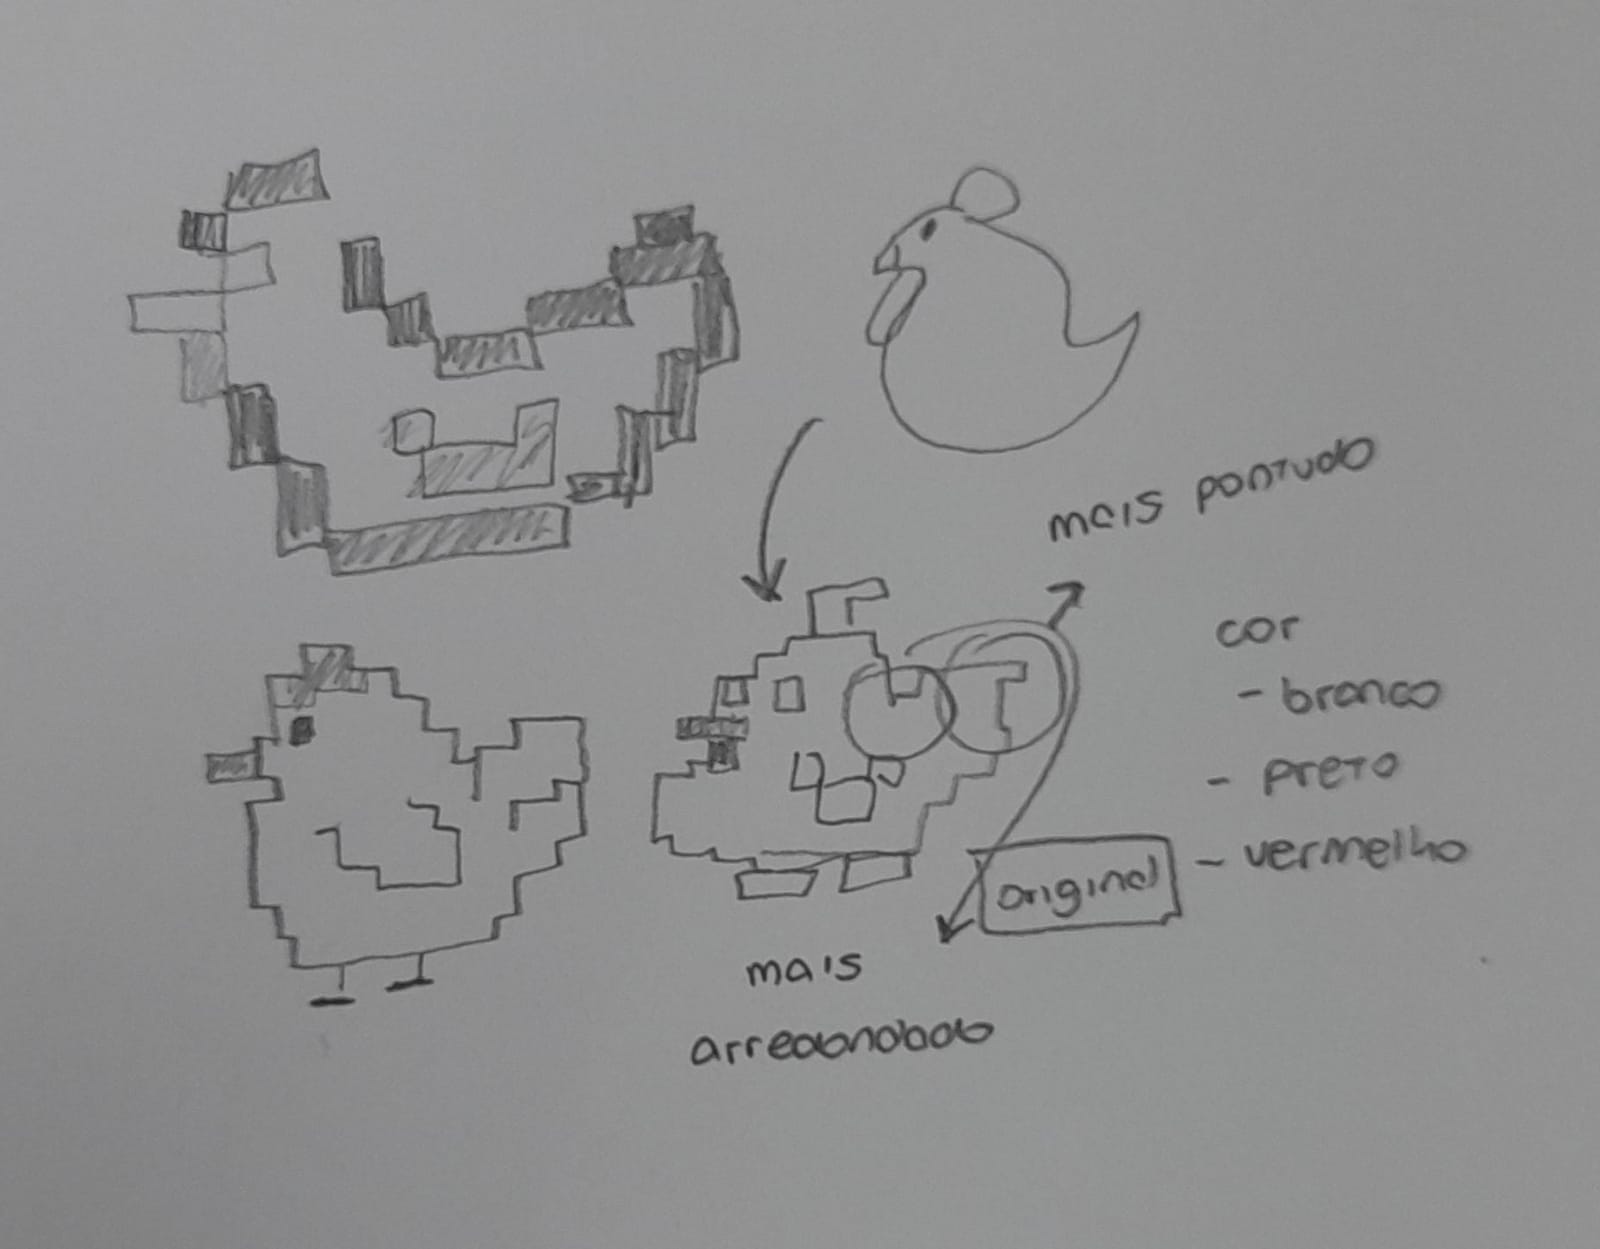 mais pontudo
cor
- branco
- preto
- vermelho
original
mais
arredondado